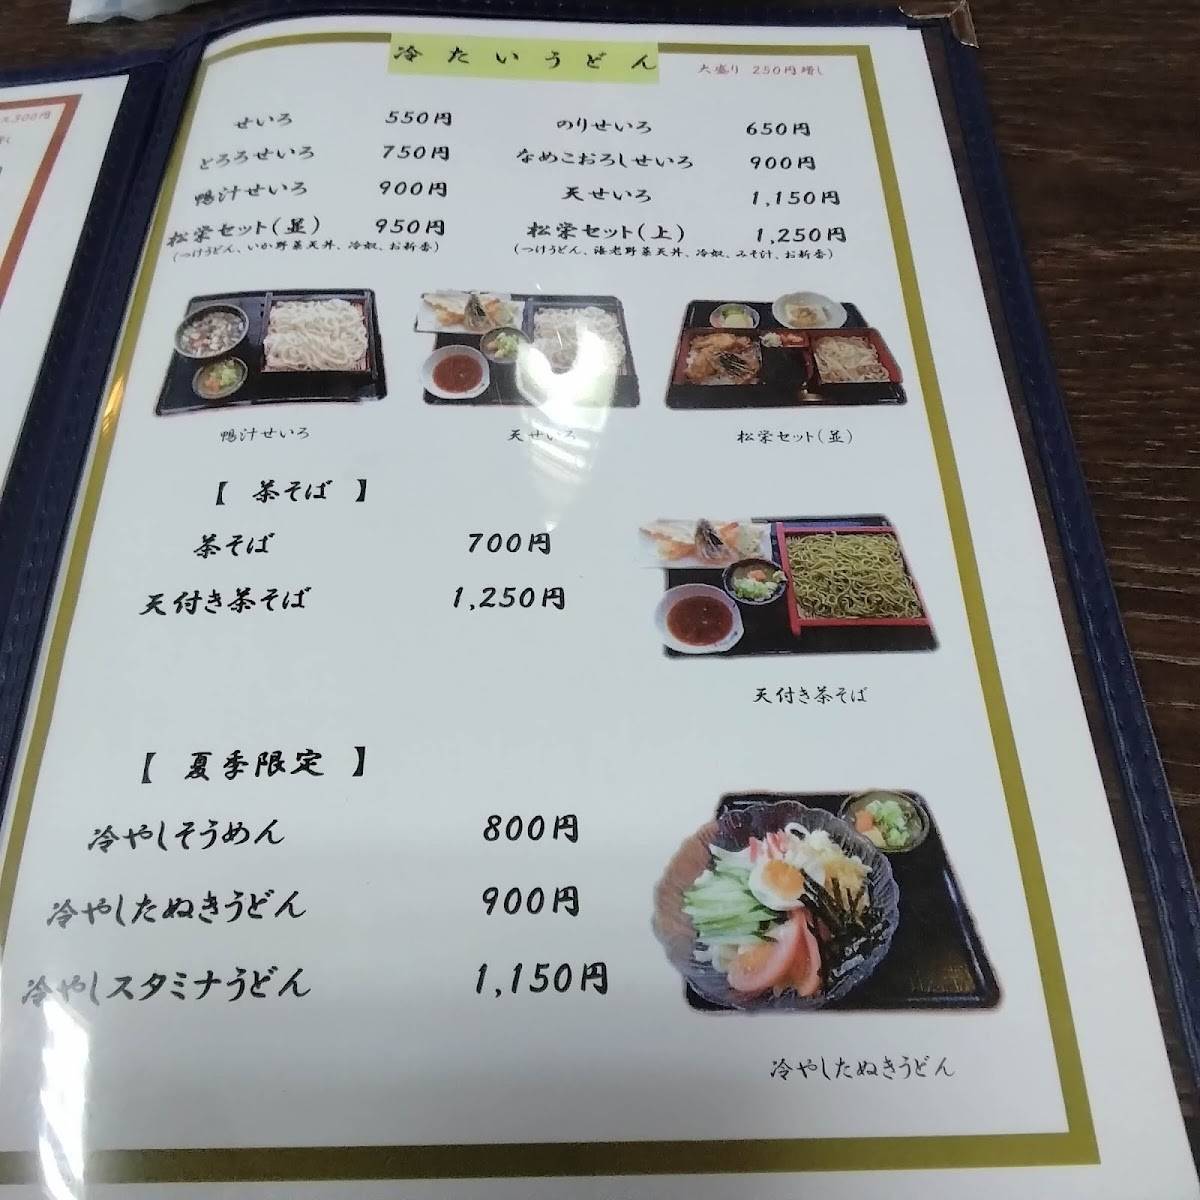 冷たいうどん
大盛り 250円増し
せいろ 550円 のりせいろ 650円
とろろせいろ 750円 なめこおろしせいろ 900円
鴨汁せいろ 900円 天せいろ 1,150円
松栄セット(並) 950円 松栄セット(上) 1,250円
(つけうどん、いか野菜天丼、冷奴、お新香) (つけうどん、海老野菜天丼、冷奴、みそ汁、お新香)
鴨汁せいろ 天せいろ 松栄セット(並)
【 茶そば 】
茶そば 700円
天付き茶そば 1,250円
天付き茶そば
【 夏季限定 】
冷やしそうめん 800円
冷やしたぬきうどん 900円
冷やしスタミナうどん 1,150円
冷やしたぬきうどん
300円